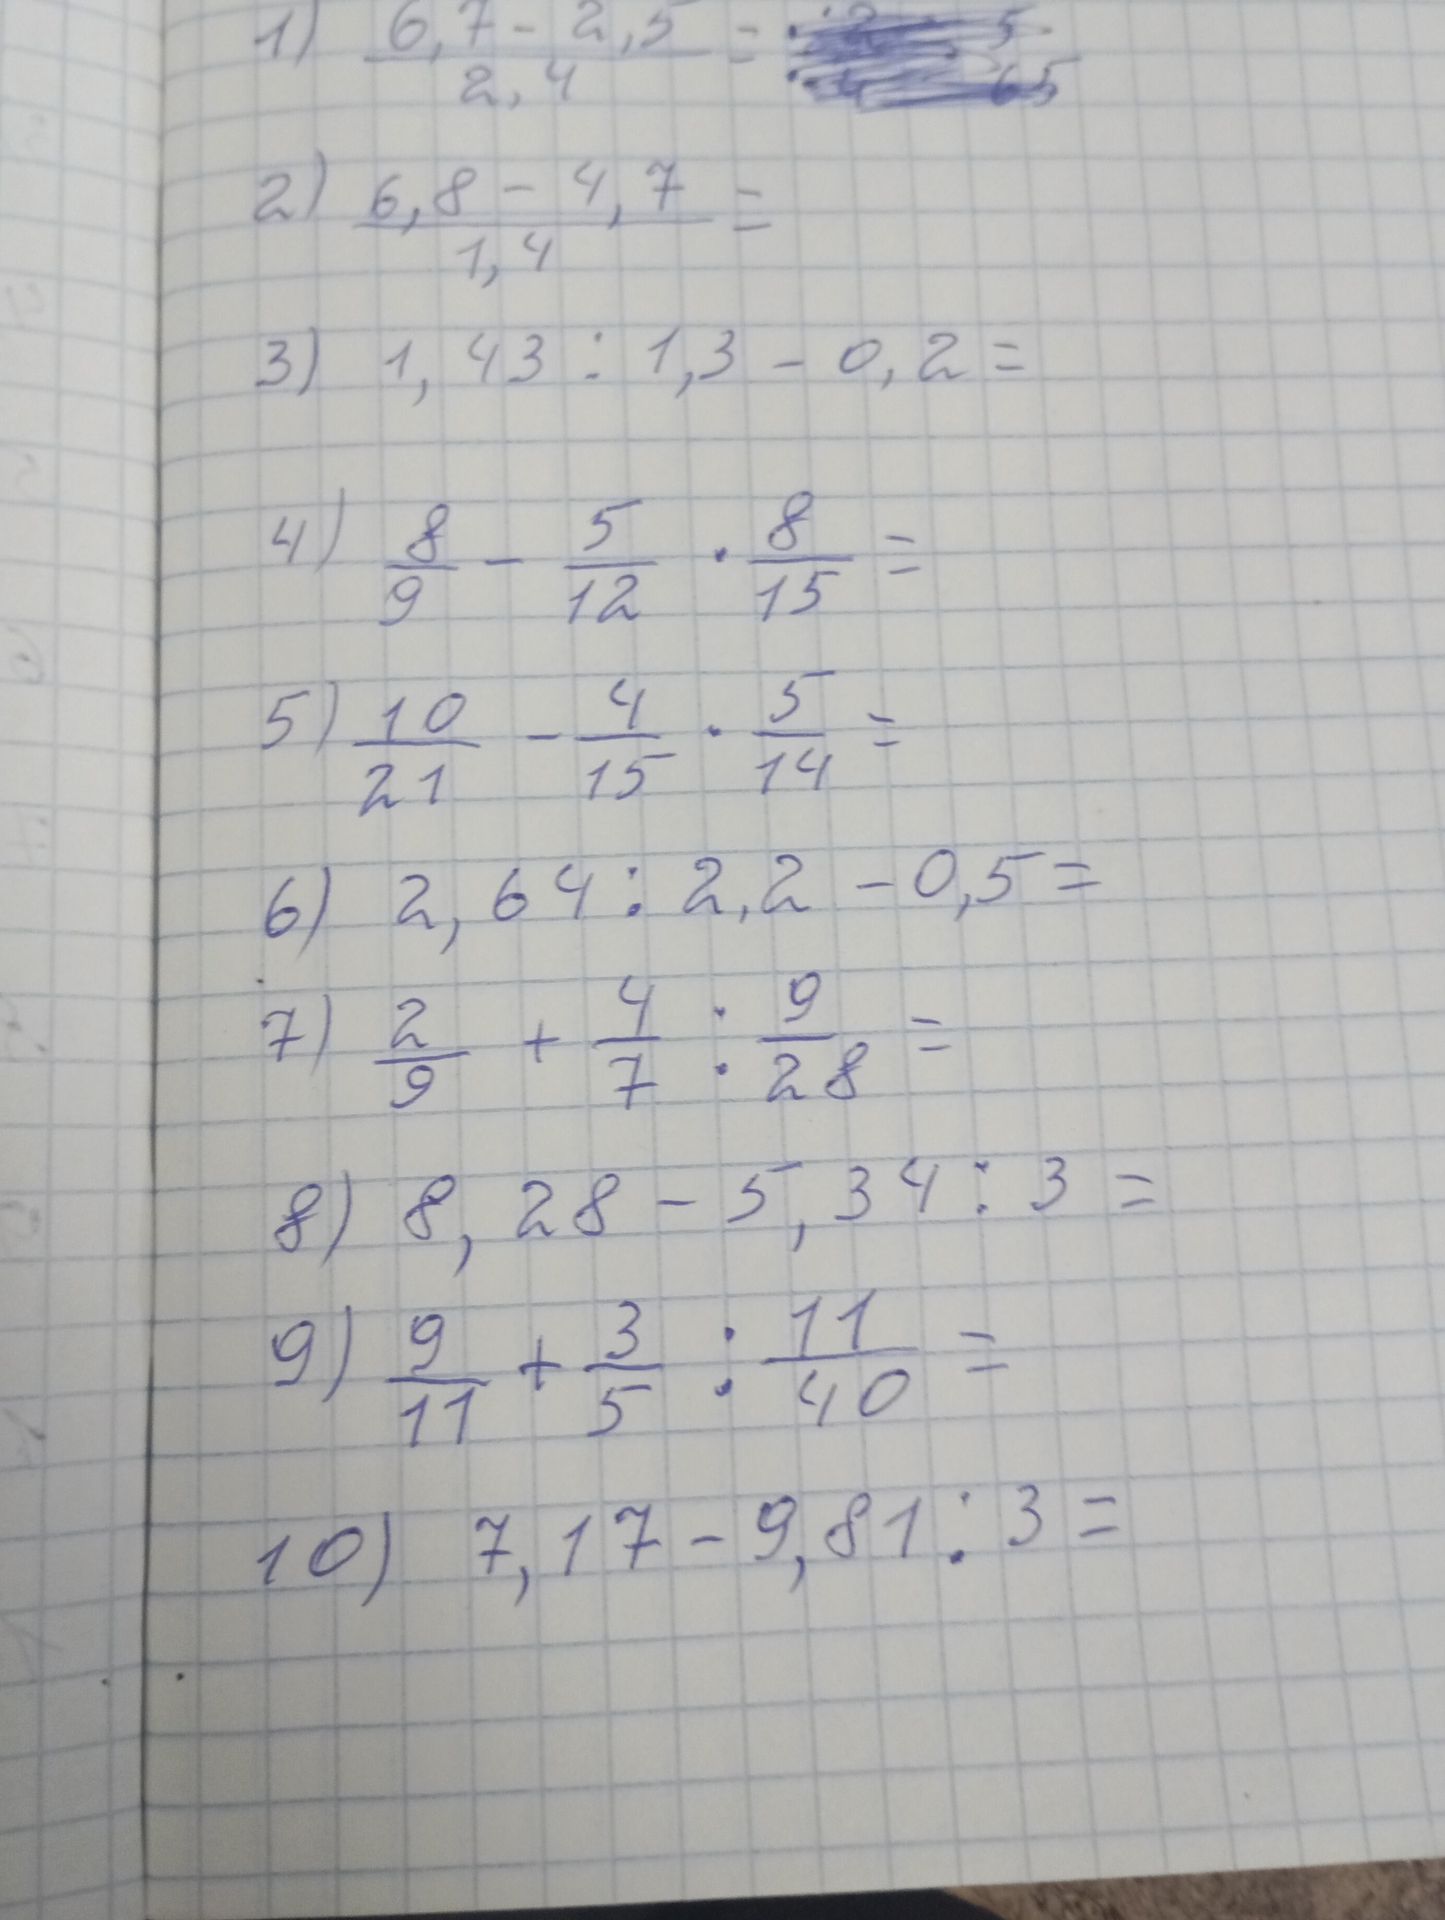 1) (6,7 - 2,5)/2,4 =
2) (6,8 - 4,7)/1,4 =
3) 1,43 : 1,3 - 0,2 =
4) 8/9 - 5/12 · 8/15 =
5) 10/21 - 4/15 · 5/14 =
6) 2,64 : 2,2 - 0,5 =
7) 2/9 + 4/7 : 9/28 =
8) 8,28 - 5,34 : 3 =
9) 9/11 + 3/5 : 11/40 =
10) 7,17 - 9,81 : 3 =